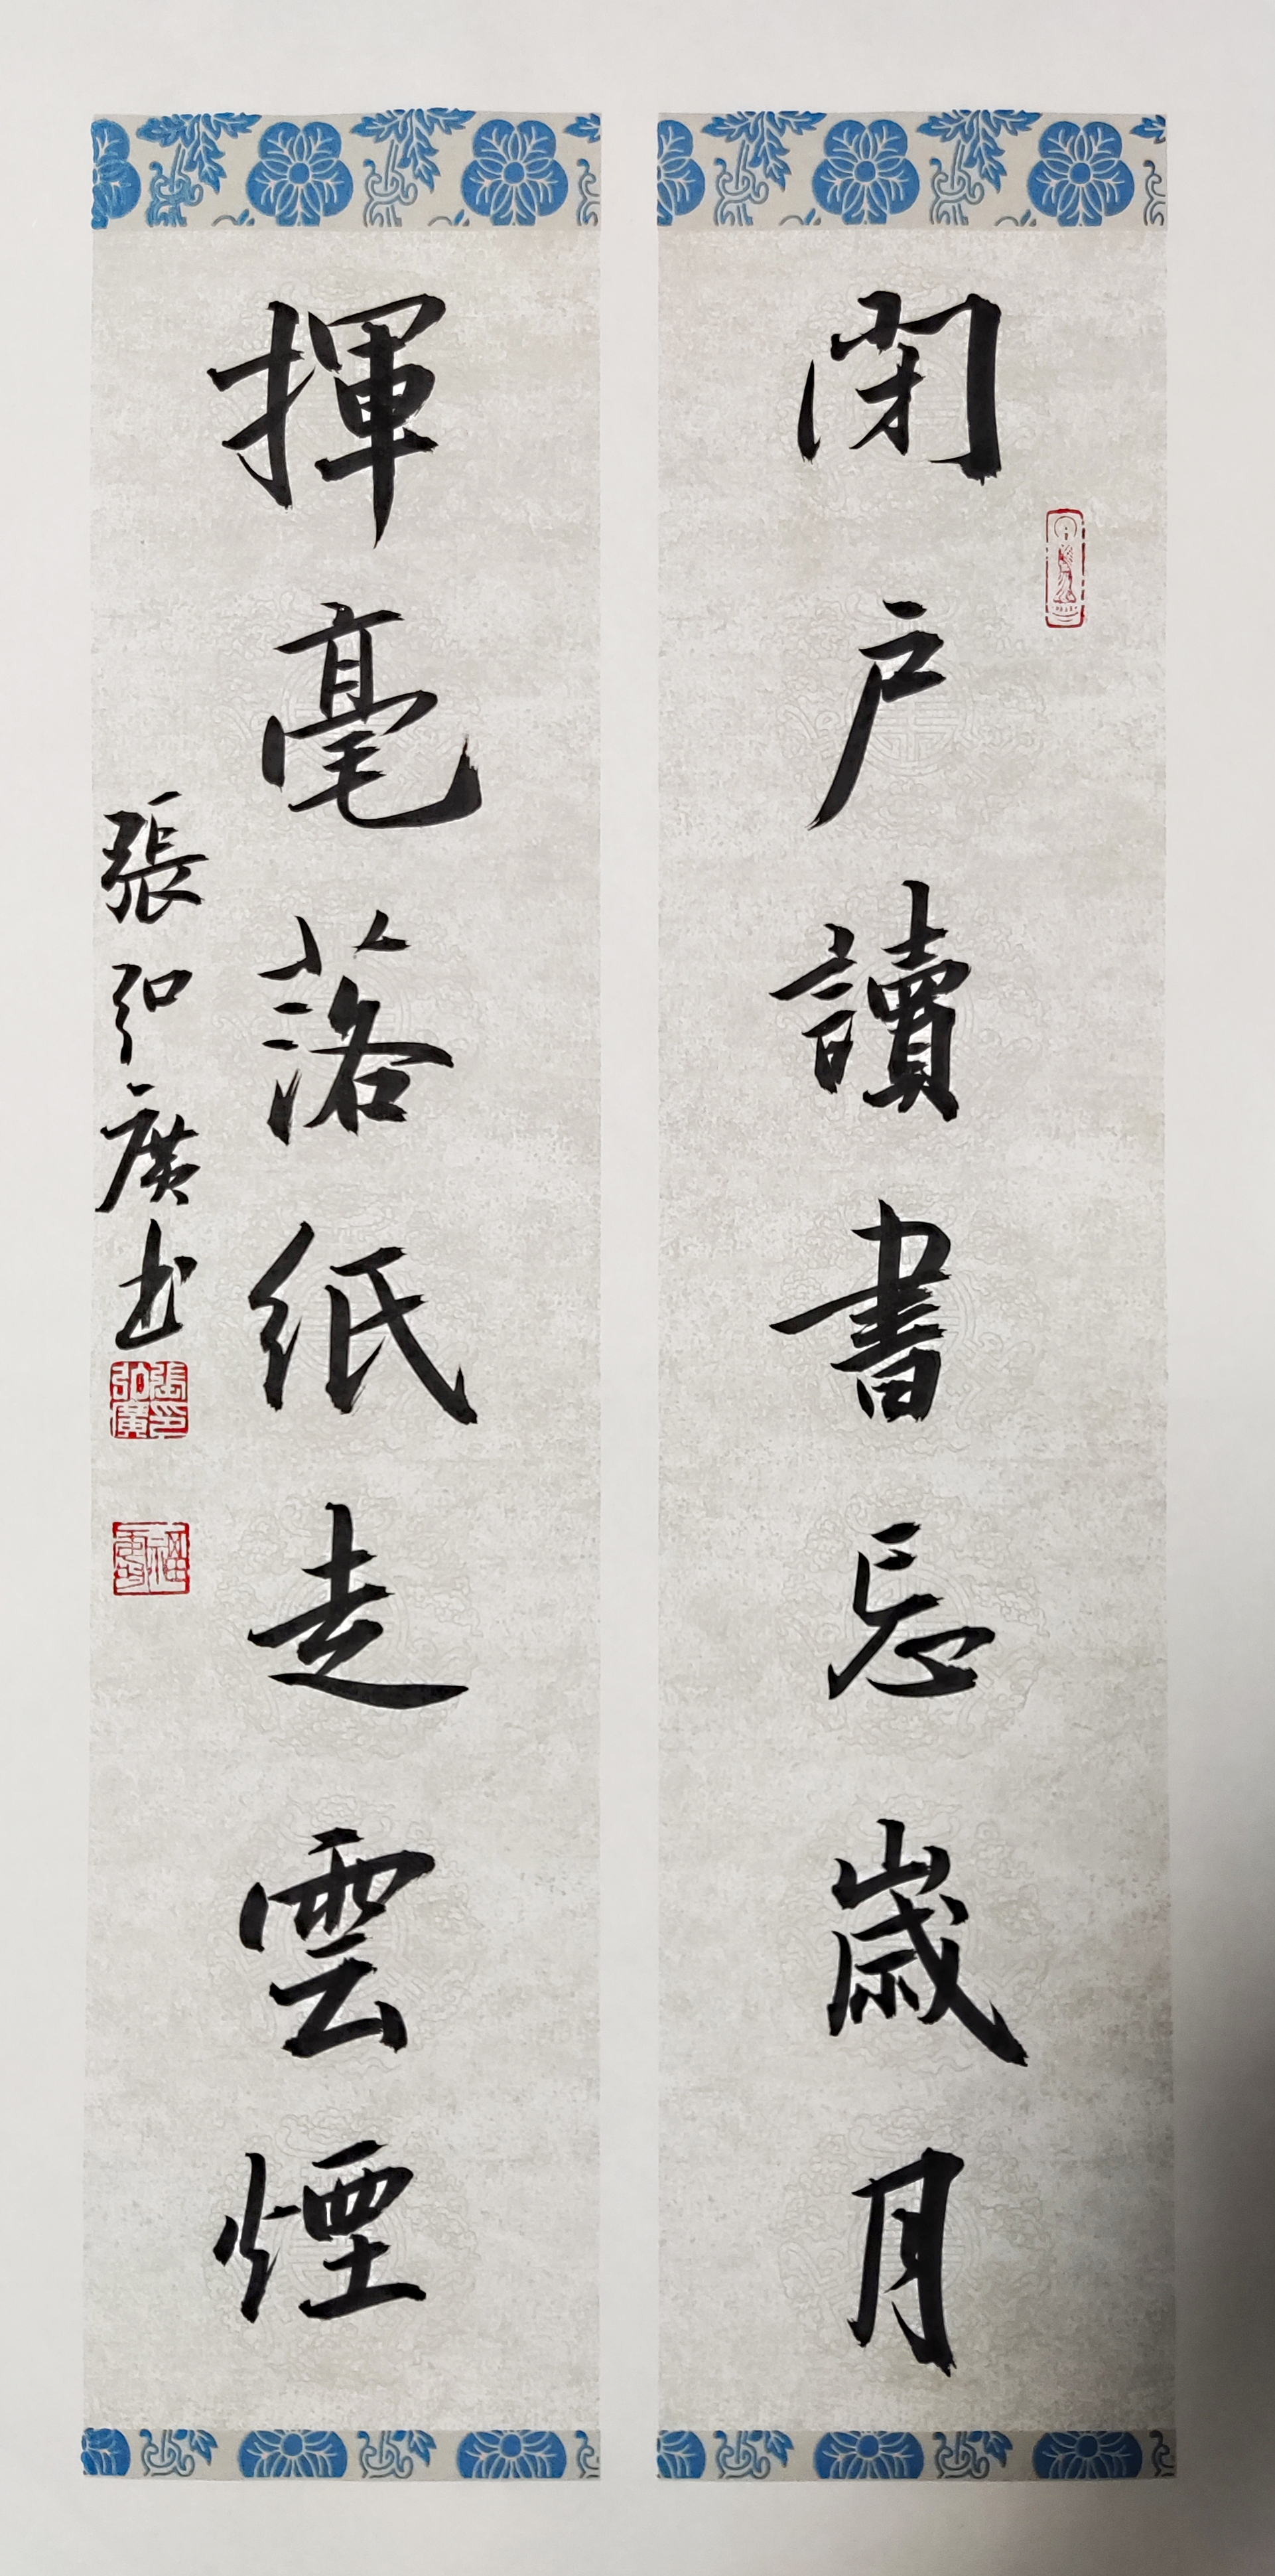 閉戶讀書忘歲月
揮毫落紙走雲煙
張弘廣书
張弘廣印